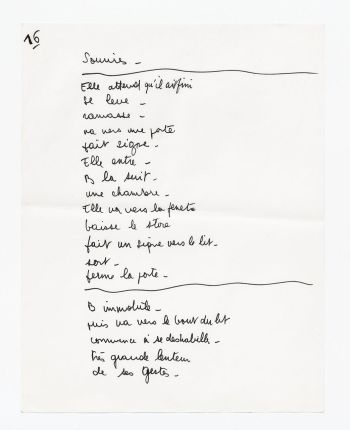 16
Sourires -
Elle attend qu'il ait fini
se lève -
ramasse -
va vers une porte
fait signe -
Elle entre -
B la suit -
une chambre -
Elle va vers la fenêtre
baisse le store
fait un signe vers le lit -
sort -
ferme la porte -
B immobile -
puis va vers le bout du lit
commence à se deshabiller -
très grande lenteur
de ses gestes -